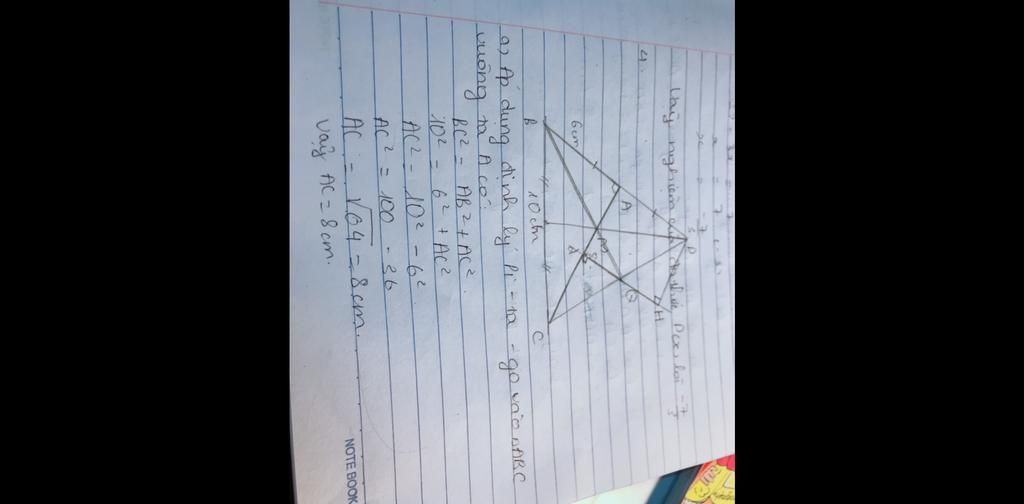 x = -7/5
Vậy nghiệm của đa thức P(x) là -7/5
4.
D
H
A
Q
M
6cm
B
10cm
C
a) Áp dụng định lý Pi-ta-go vào ΔABC
vuông tạ A có:
BC² = AB² + AC².
10² = 6² + AC²
AC² = 10² - 6².
AC² = 100 - 36
AC = √64 = 8cm.
Vậy AC = 8cm.
NOTE BOOK